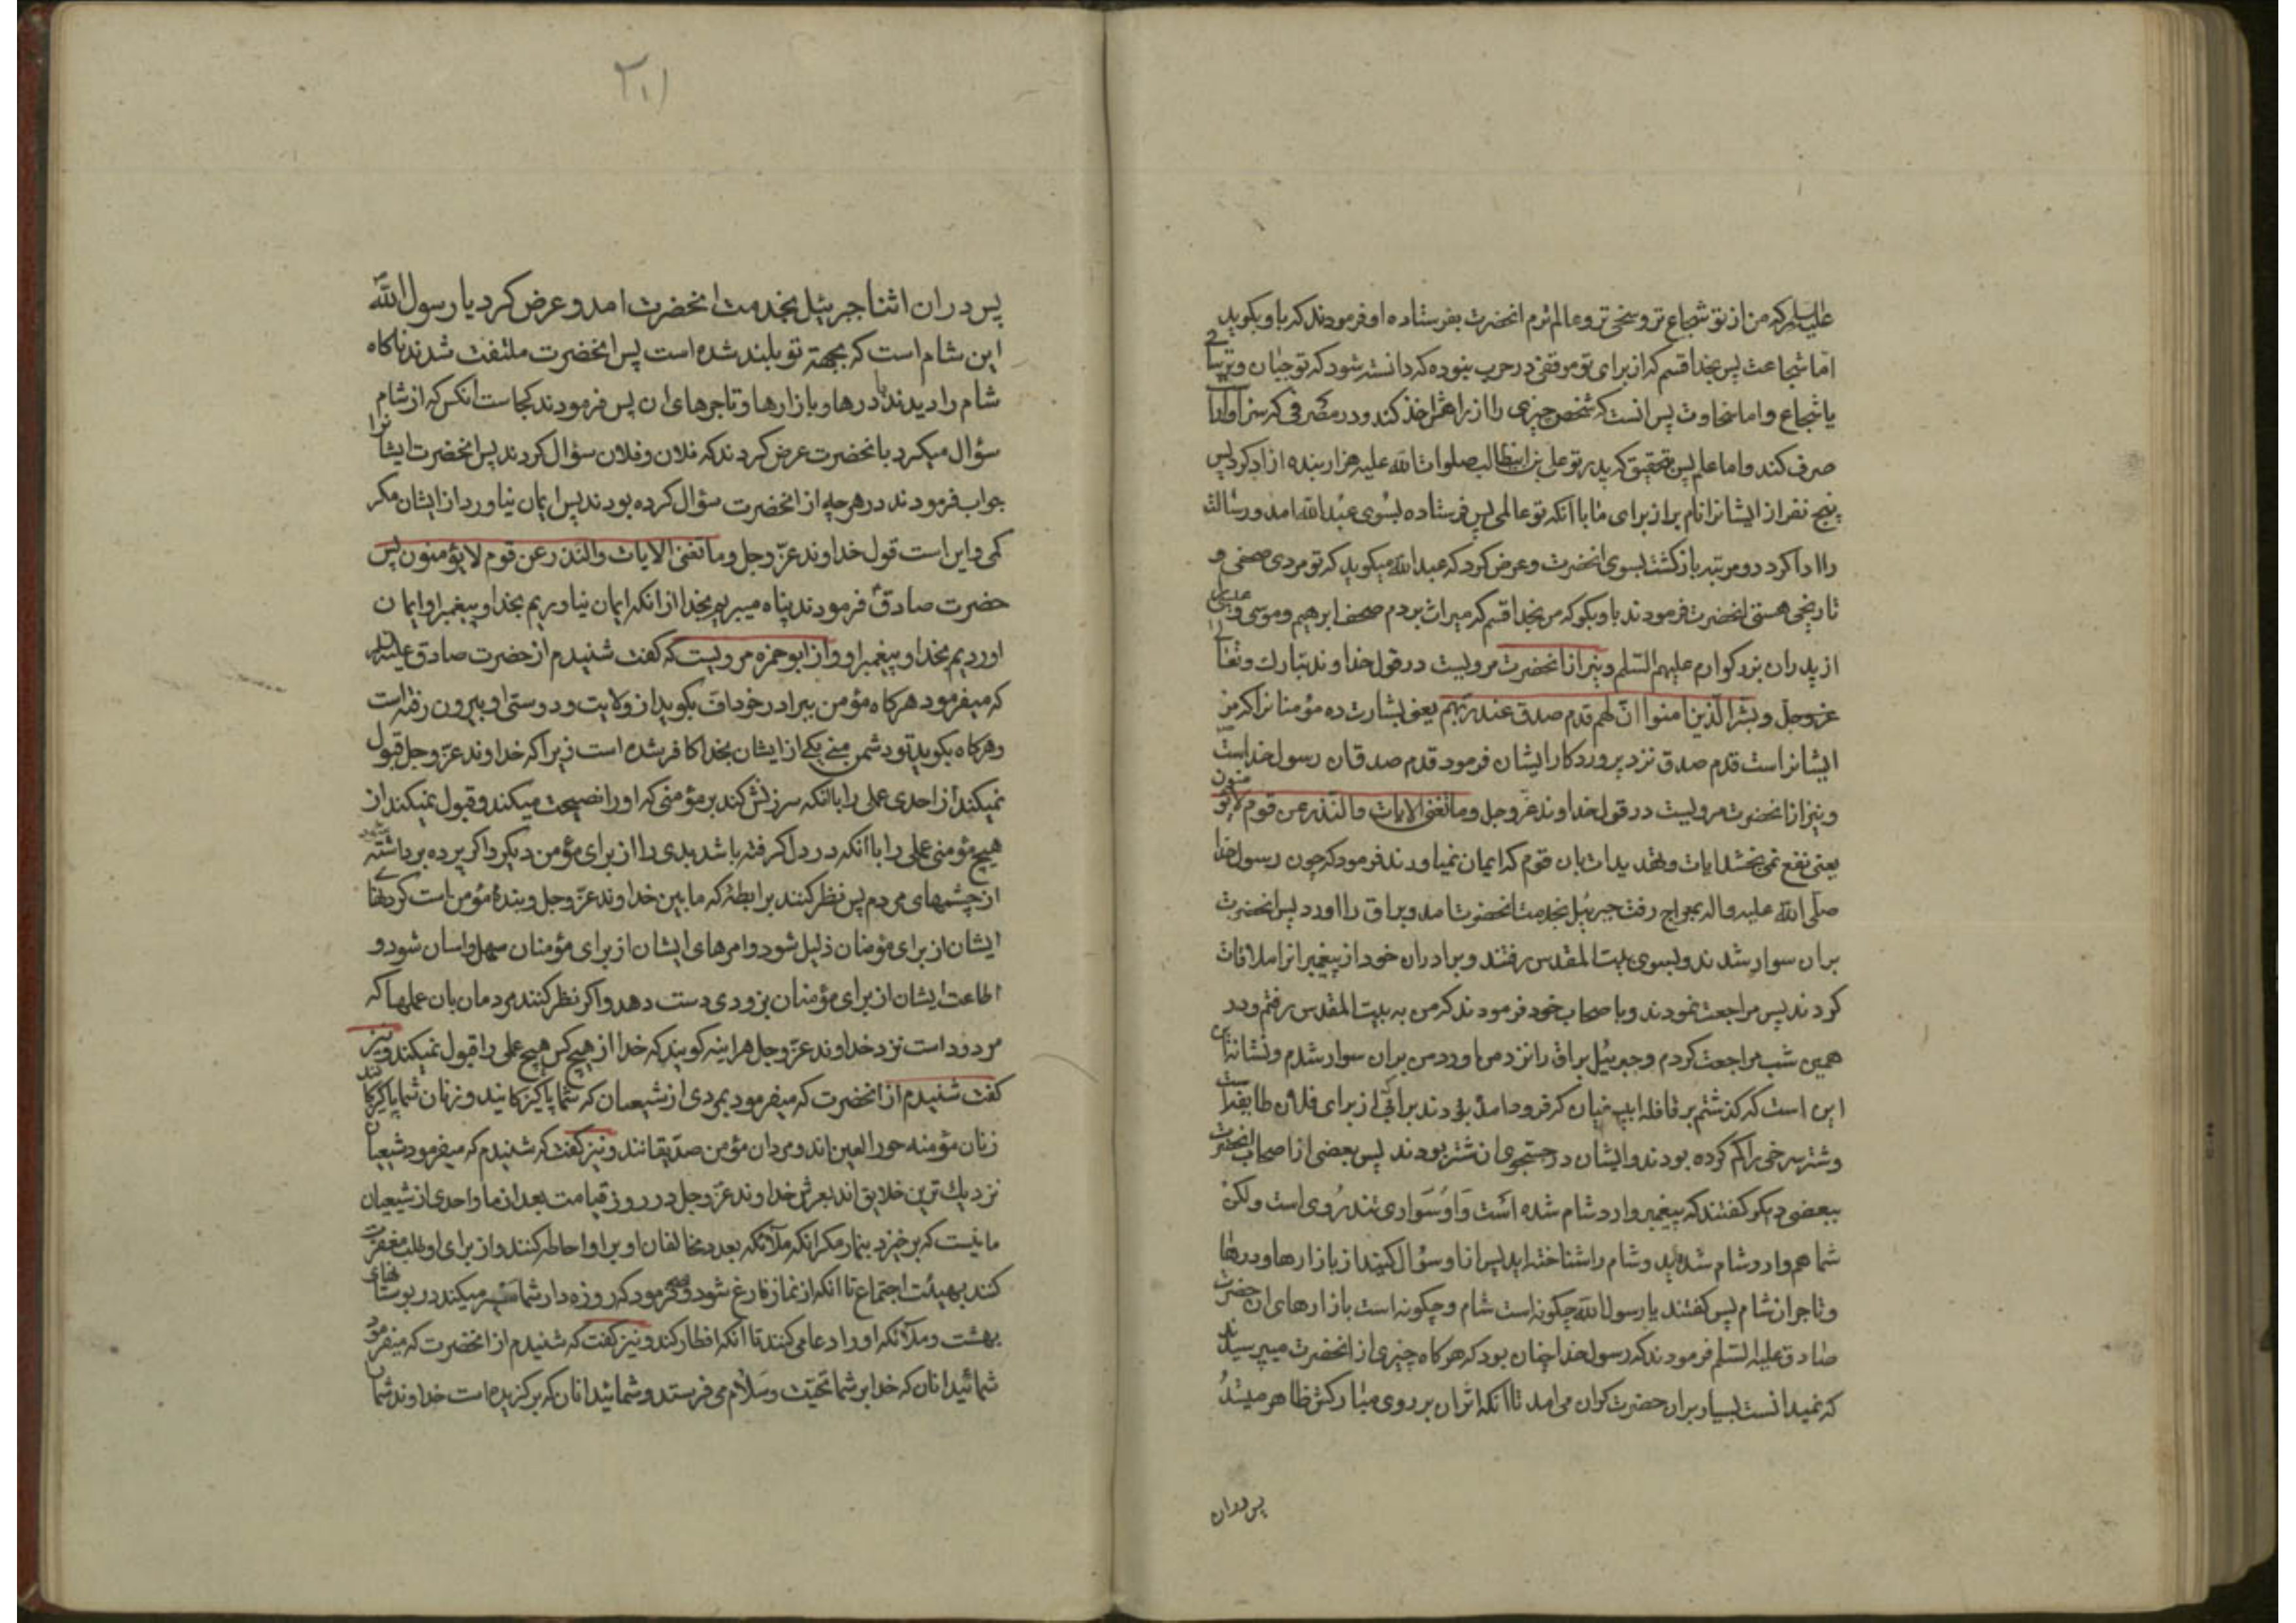 علیه السلم که من از تو شجاع تر و سخی تر و عالم ترم انحضرت بفرستاده او فرمودند که باو بکوید
اما شجاعت پس بخدا قسم که از برای تو موقفی در حرب نبوده که دانسته شود که تو جبان و ترسا
یا شجاع و اما سخاوت پس انست که شخص چیزی را از راهش اخذ کند و در مصرفی که سزاوار
صرف کند و اما علم پس بتحقیق که پدر تو علی بن ابیطالب صلوات الله علیه هزار بنده ازاد کرد پس
پنج نفر از ایشانرا نام بر از برای ما با انکه تو عالمی پس فرستاده بسوی عبد الله امد و رسالت
را ادا کرد دو مرتبه بازکشت بسوی انحضرت و عرض کرد که عبد الله میکوید که تو مردی صحفی و
تاریخی هستی انحضرت فرمودند باو بکو که من بخدا قسم که میراث بردم صحف ابرهیم و موسی و عیسی را
از پدران بزرکوارم علیهم السلم و نیز از انحضرت مرویست در قول خداوند تبارک و تعا
عز و جل و بشر الذین امنوا ان لهم قدم صدق عند ربهم یعنی بشارت ده مؤمنانرا که
ایشانراست قدم صدق نزد پروردکار ایشان فرمود قدم صدق ان رسول خداست
و نیز از انحضرت مرویست در قول خداوند عز و جل و ما تغنی الایات و النذر عن قوم لا یؤمنون
یعنی نفع نمی بخشد ایات و تهدیدات بان قوم که ایمان نمیاورند فرمود که چون رسول خدا
صلی الله علیه و اله بمعراج رفت جبرئیل بخدمت انحضرت امد و براق را اورد پس انحضرت
بران سوار شدند و بسوی بیت المقدس رفتند و برادران خود از پیغمبرانرا ملاقات
کردند پس مراجعت نمودند و با صحاب خود فرمودند که من به بیت المقدس رفتم و در
همین شب مراجعت کردم و جبرئیل براق را نزد من اورد من بران سوار شدم و نشانه این
این است که کذشتم بر قافله ابی سفیان که فرود امده بودند بر ابی از برای فلان طایفه است
و شتر سرخی را کم کرده بودند و ایشان در جستجوی ان شتر بودند پس بعضی از اصحاب انحضرت
ببعضی دیکر کفتند که پیغمبر وارد شام شده است و او سواری تند روی است ولکن
شما هم وارد شام شده اید و شام را شناخته اید پس از او سؤال کنید از بازارها و درها
و تاجران شام پس کفتند یا رسول الله چکونه است شام و چکونه است بازارهای ان حضرت
صادق علیه السلم فرمودند که رسول خدا چنان بود که هرکاه چیزی از انحضرت میپرسیدند
که نمیدانست بسیار بران حضرت کران می امد تا انکه اثر ان بر روی مبارکش ظاهر میشد
پس دران
۲۱۱
پس دران اثنا جبرئیل بخدمت انحضرت امد و عرض کرد یا رسول الله
این شام است که بجهة تو بلند شده است پس انحضرت ملتفت شدند ناکاه
شام را دیدند با درها و بازارها و تاجرهای ان پس فرمودند کجاست انکس که از شام
سؤال میکرد بانحضرت عرض کردند که فلان و فلان سؤال کردند پس انحضرت ایشانرا
جواب فرمودند در هر چه از انحضرت سؤال کرده بودند پس ایمان نیاورد از ایشان مکر
کمی و این است قول خداوند عز و جل و ما تغنی الایات و النذر عن قوم لا یؤمنون پس
حضرت صادق فرمودند پناه میبریم بخدا از انکه ایمان نیاوریم بخدا و پیغمبر او ایمان
اوردیم بخدا و پیغمبر او و از ابو حمزه مرویست که کفت شنیدم از حضرت صادق علیه السلم
که میفرمود هرکاه مؤمن ببرادر خود اف بکوید از ولایت و دوستی او بیرون رفته است
و هرکاه بکوید تو دشمن منی یکی از ایشان بخدا کافر شده است زیرا که خداوند عز و جل قبول
نمیکند از احدی عملی را با انکه سرزنش کند بر مؤمنی که او را نصیحت میکند و قبول نمیکند از
هیچ مؤمنی عملی را با انکه در دل کرفته باشد بدی را از برای مؤمن دیکر و اکر پرده برداشته شود
از چشمهای مردم پس نظر کنند برابطهٔ که ما بین خداوند عز و جل و بندهٔ مؤمن است کردنها
ایشان از برای مؤمنان ذلیل شود و امرهای ایشان از برای مؤمنان سهل و اسان شود و
اطاعت ایشان از برای مؤمنان بزودی دست دهد و اکر نظر کنند مردمان بان عملها که
مردود است نزد خداوند عز و جل هراینه کویند که خدا از هیچ کس هیچ عملی را قبول نمیکند و نیز
کفت شنیدم از انحضرت که میفرمود بمردی از شیعیان که شما پاکیزکانید و زنان شما پاکیزکانند
زنان مؤمنه حور العین اند و مردان مؤمن صدیقانند و نیز کفت که شنیدم که میفرمود شیعیان
نزدیک ترین خلایق اند بعرش خداوند عز و جل در روز قیامت بعد از ما و احدی از شیعیان
ما نیست که برخیزد بنماز مکر انکه ملائکه بعدد مخالفان او بر او احاطه کنند و از برای او طلب مغفرت
کنند بهیئت اجتماع تا انکه از نماز فارغ شود و فرمود که روزه دار شما سیر میکند در بوستانهای
بهشت و ملائکه او را دعا می کنند تا انکه افطار کند و نیز کفت که شنیدم از انحضرت که میفرمود
شمائید انان که خدا بر شما تحیت و سلام می فرستد و شمائید انان که برکزیده است خداوند شمان